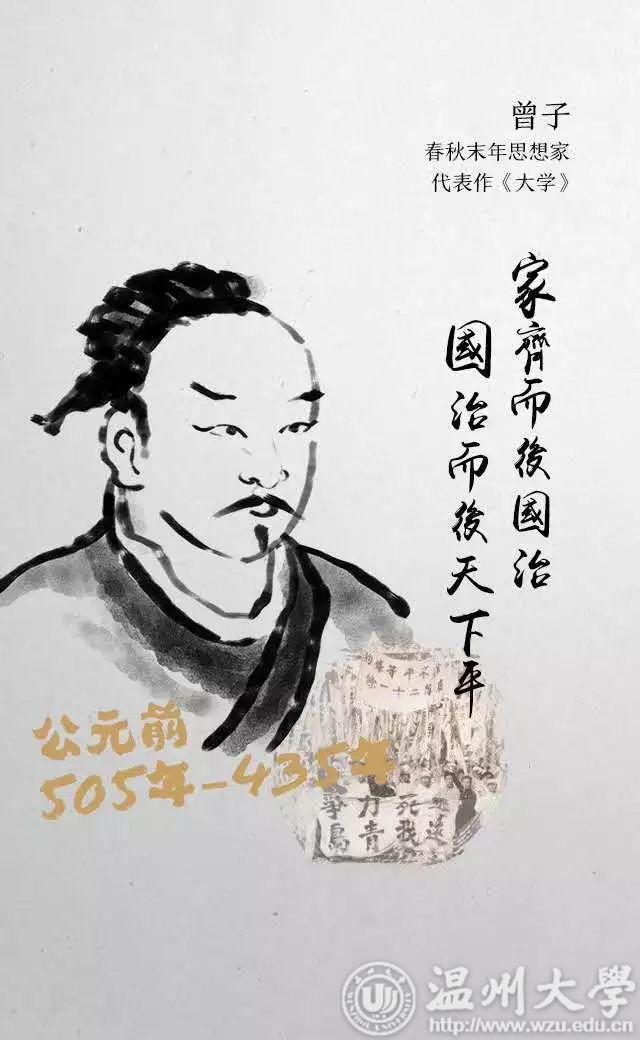 曾子
春秋末年思想家
代表作《大学》
家齊而後國治
國治而後天下平
公元前
505年-435年
二十一條
爭 力 死
島 青 我 還
温州大學
WENZHOU UNIVERSITY
http://www.wzu.edu.cn